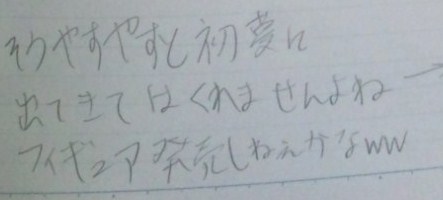 そうやすやすと初夢に
出てきてはくれませんよねー
フィギュア発売しねぇかなww